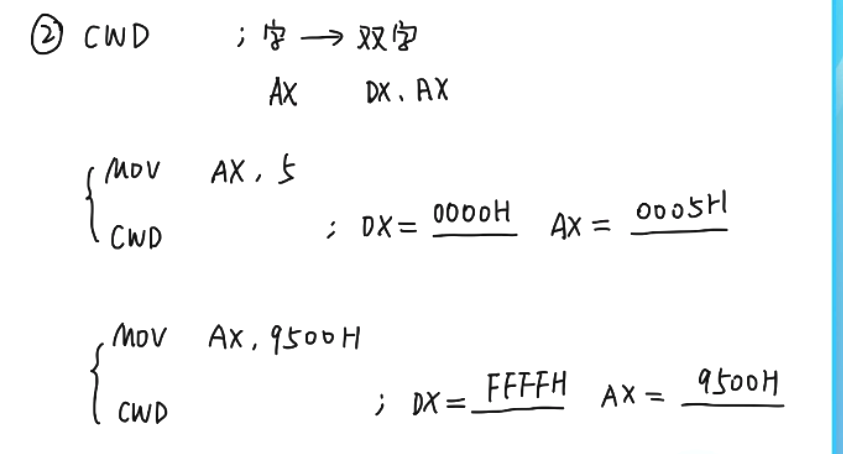 ② CWD ;字 → 双字
AX DX、AX
MOV AX, 5
CWD ; DX= 0000H AX = 0005H
MOV AX, 9500H
CWD ; DX= FFFFH AX = 9500H